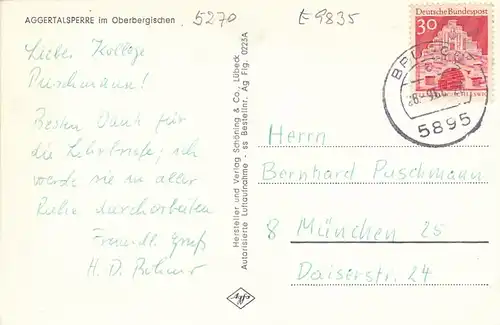 AGGERTALSPERRE im Oberbergischen
5270
E9835
Lieber Kollege
Puschmann!
Besten Dank für
die Lehrbriefe; ich
werde sie in aller
Ruhe durcharbeiten
Freundl. Gruß
H. D. Böhmer
Hersteller und Verlag Schöning & Co., Lübeck
Autorisierte Luftaufnahme - ss Bestellnr. Ag Flg. 0225A
30
Deutsche Bundespost
5895
Herrn
Bernhard Puschmann
8 München 25
Daiserstr. 24